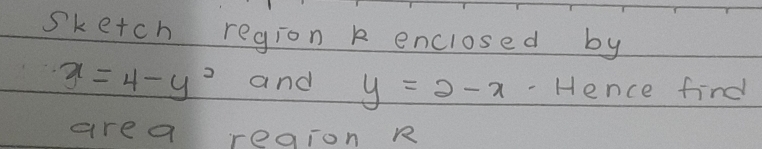 Sketch region R enclosed by
x = 4 - y² and y = 2 - x. Hence find
area region R